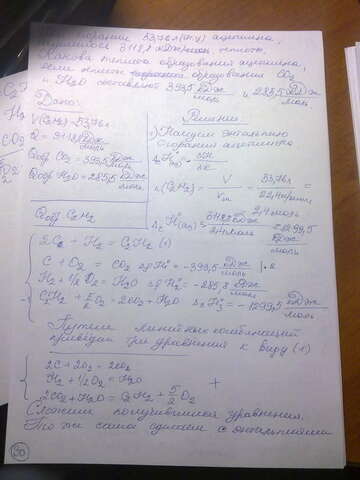 сгорании 53,76 л (н.у) ацетилена,
выделилось 3118,2 кДж теплоты.
Какова теплота образования ацетилена,
если теплоты образования CO2
и H2O составляют 393,5 кДж/моль и 285,5 кДж/моль
Дано:
V(C2H2) = 53,76 л
Q =
Qобр CO2 = 393,5 кДж/моль
Qобр H2O = 285,5 кДж/моль
Qобр C2H2
Решение
1) Находим энтальпию
сгорания ацетилена
(C2H2) = V/Vm = 53,76 л / 22,4 л/моль =
2,4 моль
= 1299,5 кДж/моль
2C + H2 = C2H2 (1)
C + O2 = CO2 ΔfH° = -393,5 кДж/моль | • 2
H2 + 1/2 O2 = H2O ΔfH° = -285,5 кДж/моль
C2H2 + 5/2 O2 = 2CO2 + H2O = -1299,5 кДж/моль
Путем линейных комбинаций
приведем три уравнения к виду (1)
2C + 2O2 = 2CO2
H2 + 1/2 O2 = H2O +
2CO2 + H2O = C2H2 + 5/2 O2
Сложим получившиеся уравнения.
То же самое сделаем с энтальпиями
30